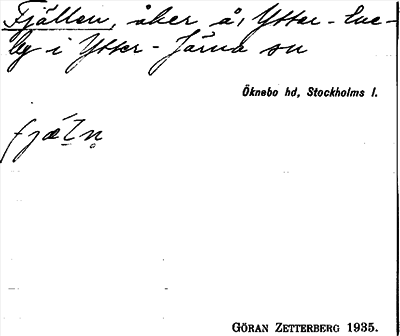 Fjällen, åker å, Ytter-Ene-
by i Ytter-Järna sn
Öknebo hd, Stockholms l.
fjäln
GÖRAN ZETTERBERG 1935.